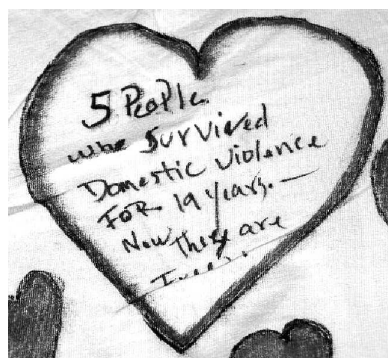 5 People
who Survived
Domestic Violence
FOR 19 years. —
Now They are